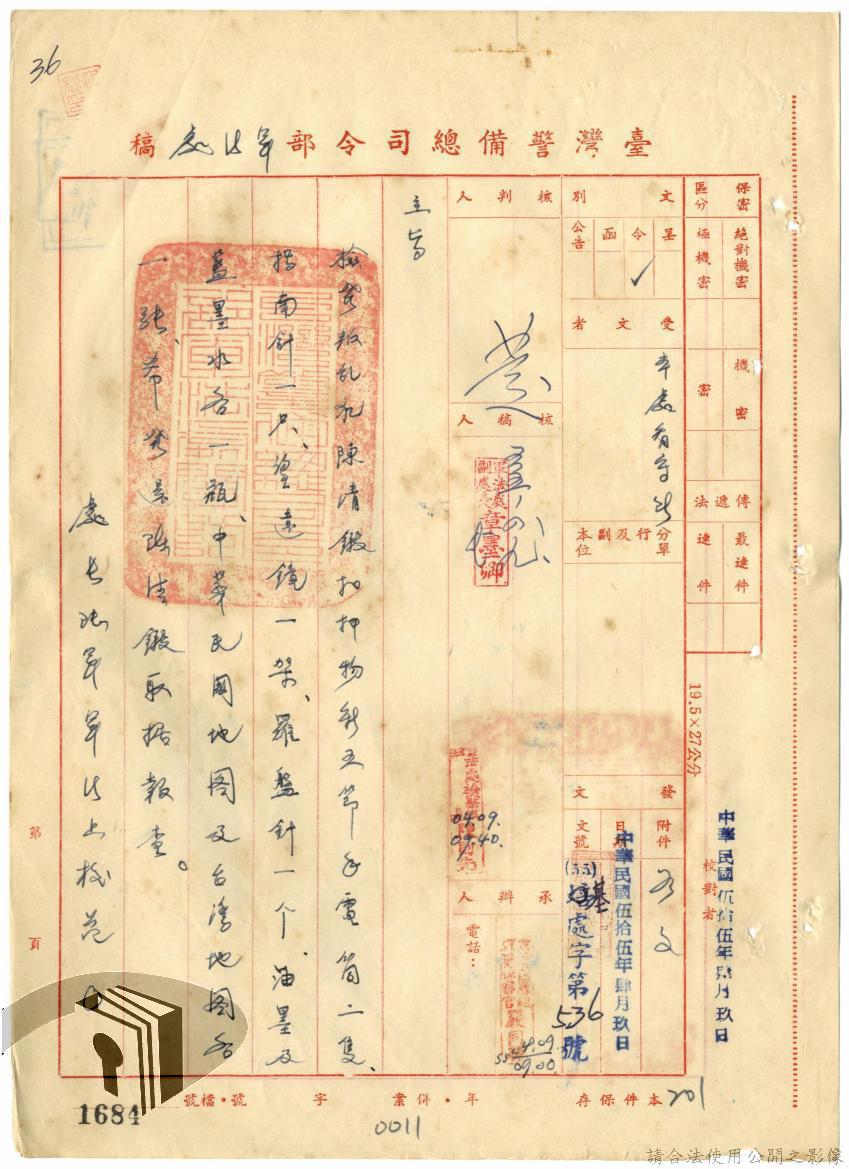 36
臺灣警備總司令部軍法處稿
保密區分
絕對機密
極機密
機密
密
傳遞法
最速件
速件
19.5×27公分
中華民國伍拾伍年肆月玖日
校對者
文別
呈
令
函
公告
✓
受文者
本處看守所
分單行及副本位
發文
附件
日期
文號
如文
中華民國伍拾伍年肆月玖日
(55)
基
處字第536號
核判人
核稿人
軍法處副處長章墨卿
04.09.
09.40.
承辦人
電話：
55 04.09.
09.00
主旨
檢發叛乱犯陳清鍛扣押物新五節手電筒二隻、
指南針一只、望遠鏡一架、羅盤針一个、油墨及
藍墨水各一瓶、中華民國地图及台湾地图各
一張、希發還陳清鍛取据報查。
處長
軍法上校范
第
頁
本件保存
年・併案
字
號・檔號
201
1684
0011
請合法使用公開之影像